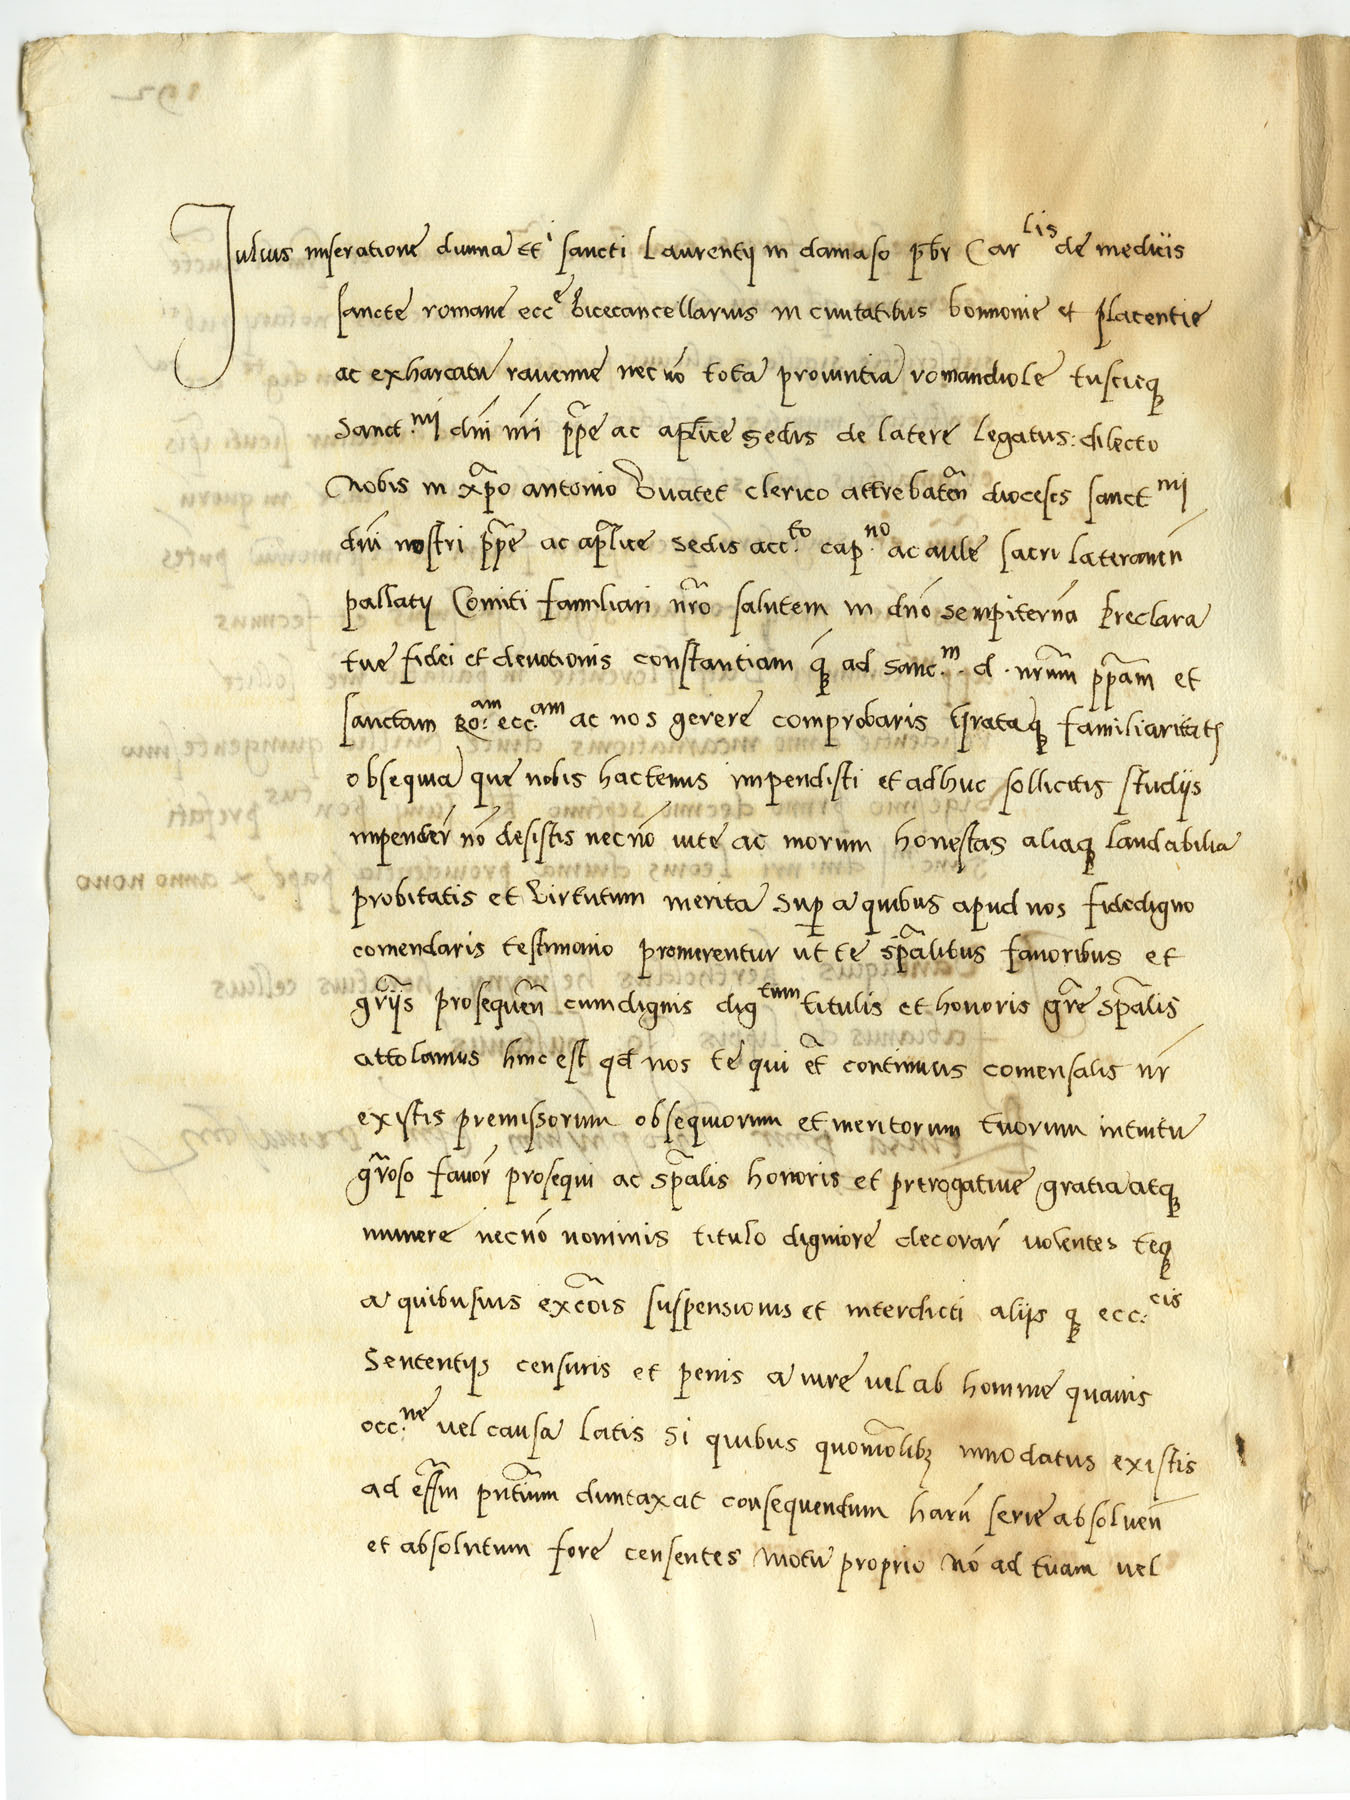 Julius miseratione diuina et i sancti Laurentij in damaso p̄br Car.lis de medicis
sancte romane ecc.e Vicecancellarius in ciuitatibus bonnonie et placentie
ac exharcatu rauenne necnō tota prouintia romandiole tuscieq
Sanct.mi dn̄i nr̄i pp̄e ac apl̄ice sedis de latere Legatus: dilecto
Nobis in xp̄o antonio clerico attrebateñ dioceses sanct.mi
dn̄i nostri pp̄e ac apl̄ice sedis acc.to cap.no ac aule sacri Lateraneñ
pallatij Comiti familiari nr̄o salutem in dn̄o sempiternā Preclara
tue fidei et deuotionis constantiam q̄ ad sanc.m d. nr̄um pp̄am et
sanctam Ro.am ecc.am ac nos gerere comprobaris Grataq familiaritatis
obsequia que nobis hactenus impendisti et adhuc sollicitis studijs
impender̄ nō desistis necnō uite ac morum honestas aliaq laudabilia
probitatis et Virtutum merita Sup̱ a quibus apud nos fidedigno
comendaris testimonio promerentur ut te sp̄alibus fauoribus et
gr̄ijs prosequeñ cumdignis dig.tum titulis et honoris gr̄e sp̄alis
attolamus hinc est qd nos te qui et̄ continuus comensalis nr̄
existis premissorum obsequiorum et meritorum tuorum intuitu
gr̄oso fauor̄ prosequi ac sp̄alis honoris et prerogatiue gratia atq
munere necnō nominis titulo digniore decorar̄ uolentes teq
a quibusuis exc̄ois suspensionis et interdicti alijs q ecc.cis
Sententijs censuris et penis a iure uel ab homine quauis
occ.ne uel causa latis si quibus quomōlibz innodatus existis
ad eff̄m pn̄tium duntaxat consequendum harū serie absolueñ
et absolutum fore censentes Motu proprio nō ad tuam uel